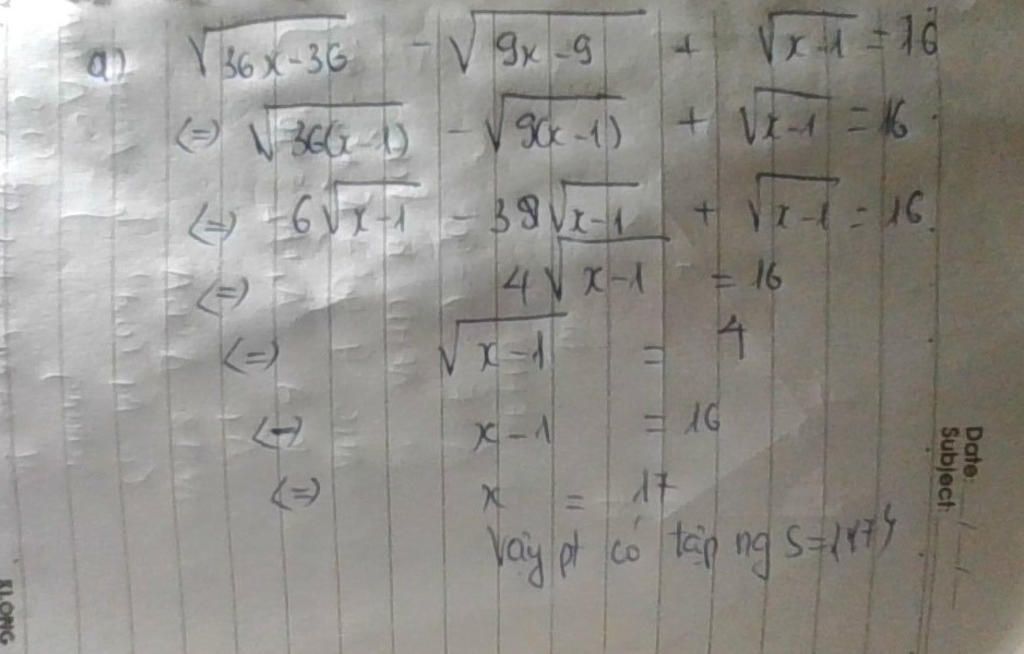 a) √36x-36 - √9x-9 + √x-1 = 16
<=> √36(x-1) - √9(x-1) + √x-1 = 16
<=> 6√x-1 - 3√x-1 + √x-1 = 16
<=> 4√x-1 = 16
<=> √x-1 = 4
<=> x-1 = 16
<=> x = 17
Vậy pt có tập ng S={17}
Date:
Subject:
KLONG